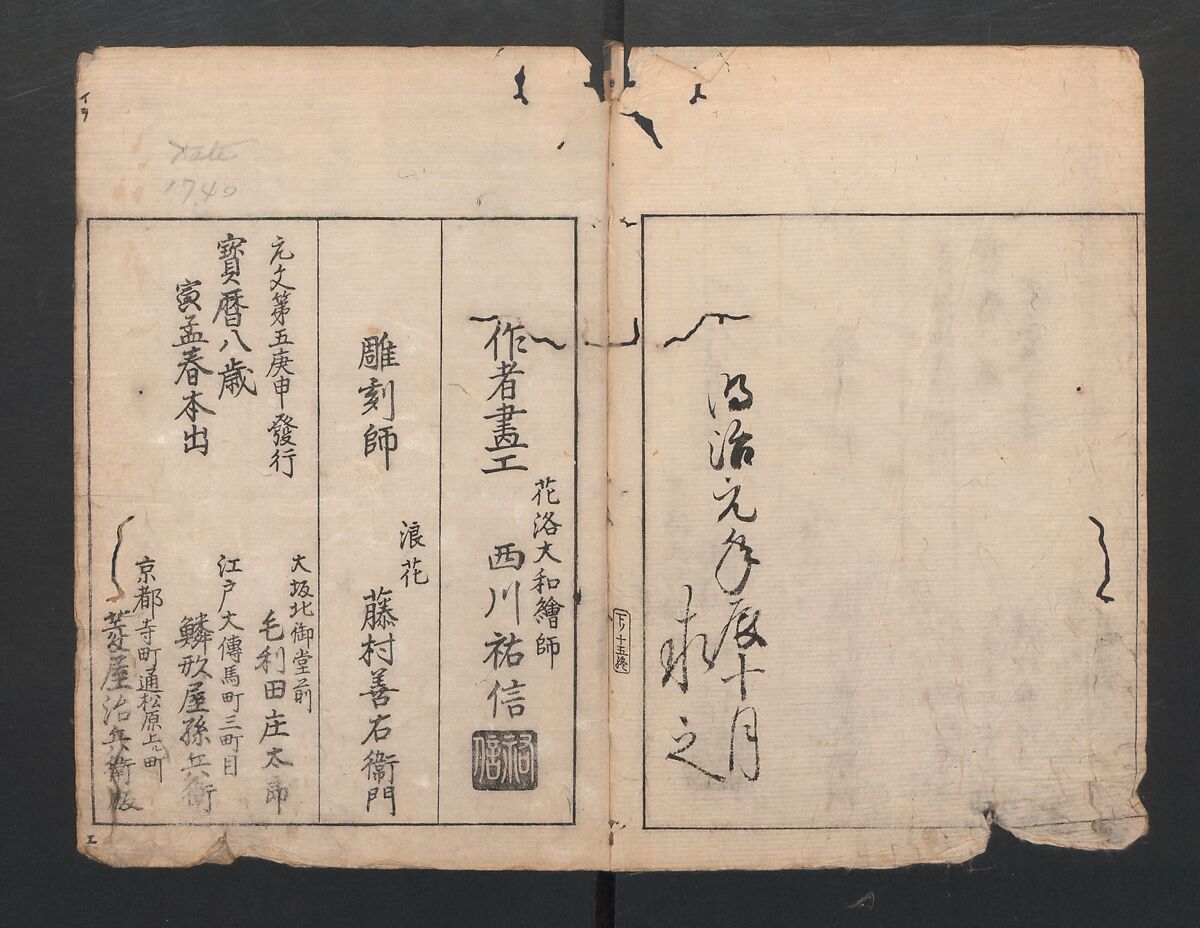 明治元年辰十月
求之
下ノ十五終
作者畫工
花洛大和繪師
西川祐信
祐信
雕刻師
浪花
藤村善右衞門
元文第五庚申發行
寳暦八歳
寅孟春本出
大坂北御堂前
毛利田庄太郎
江戸大傳馬町三町目
鱗形屋孫兵衞
京都寺町通松原上ル町
菱屋治兵衞版
Date
1740